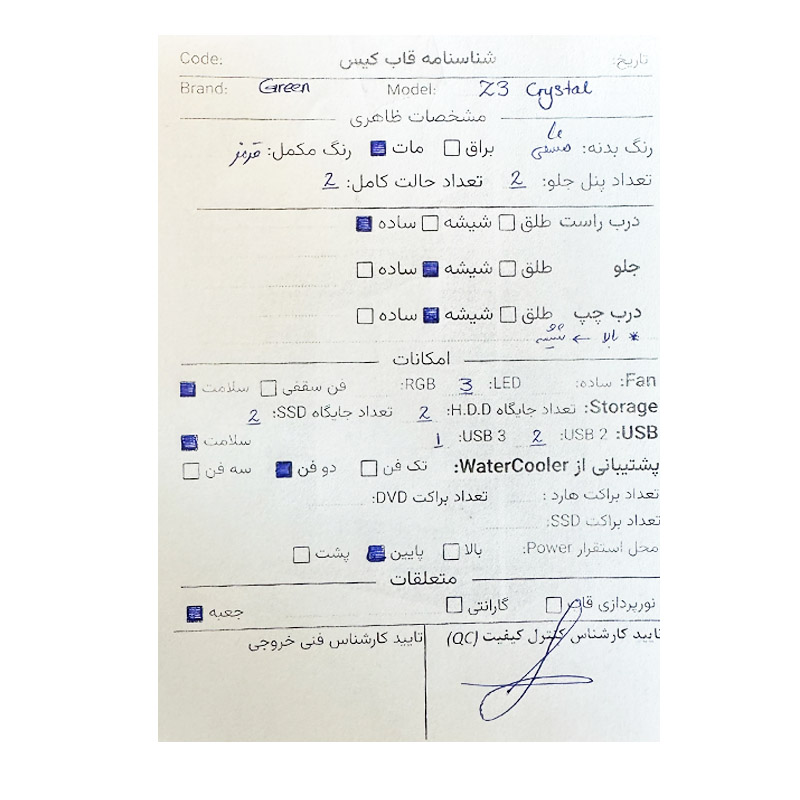 تاریخ: شناسنامه قاب کیس Code:
Brand: Green Model: Z3 Crystal
مشخصات ظاهری
رنگ بدنه: براق مات رنگ مکمل: قرمز
تعداد پنل جلو: 2 تعداد حالت کامل: 2
درب راست طلق شیشه ساده
جلو طلق شیشه ساده
درب چپ طلق شیشه ساده
* بالا ← شیشه
امکانات
Fan: ساده: LED: 3 RGB: فن سقفی سلامت
Storage: تعداد جایگاه H.D.D: 2 تعداد جایگاه SSD: 2
USB: USB 2: 2 USB 3: 1 سلامت
پشتیبانی از WaterCooler: تک فن دو فن سه فن
تعداد براکت هارد : تعداد براکت DVD:
تعداد براکت SSD:
محل استقرار Power: بالا پایین پشت
متعلقات
نورپردازی قاب گارانتی جعبه
تایید کارشناس کنترل کیفیت (QC) تایید کارشناس فنی خروجی